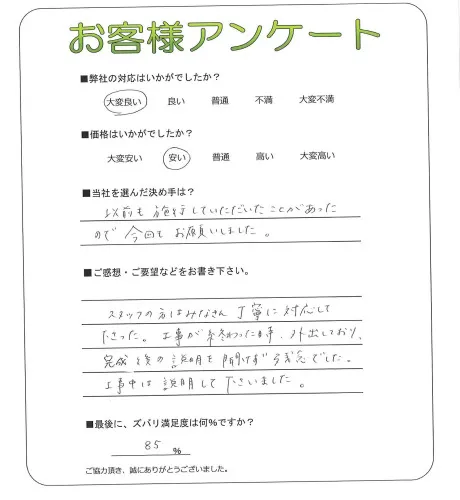 お客様アンケート
■弊社の対応はいかがでしたか？
大変良い 良い 普通 不満 大変不満
■価格はいかがでしたか？
大変安い 安い 普通 高い 大変高い
■当社を選んだ決め手は？
以前も施行していただいたことがあった
ので今回もお願いしました。
■ご感想・ご要望などをお書き下さい。
スタッフの方はみなさん丁寧に対応して
下さった。工事が終わった時、外出しており、
完成後の説明を聞けず残念でした。
工事中は説明して下さいました。
■最後に、ズバリ満足度は何%ですか？
85 %
ご協力頂き、誠にありがとうございました。